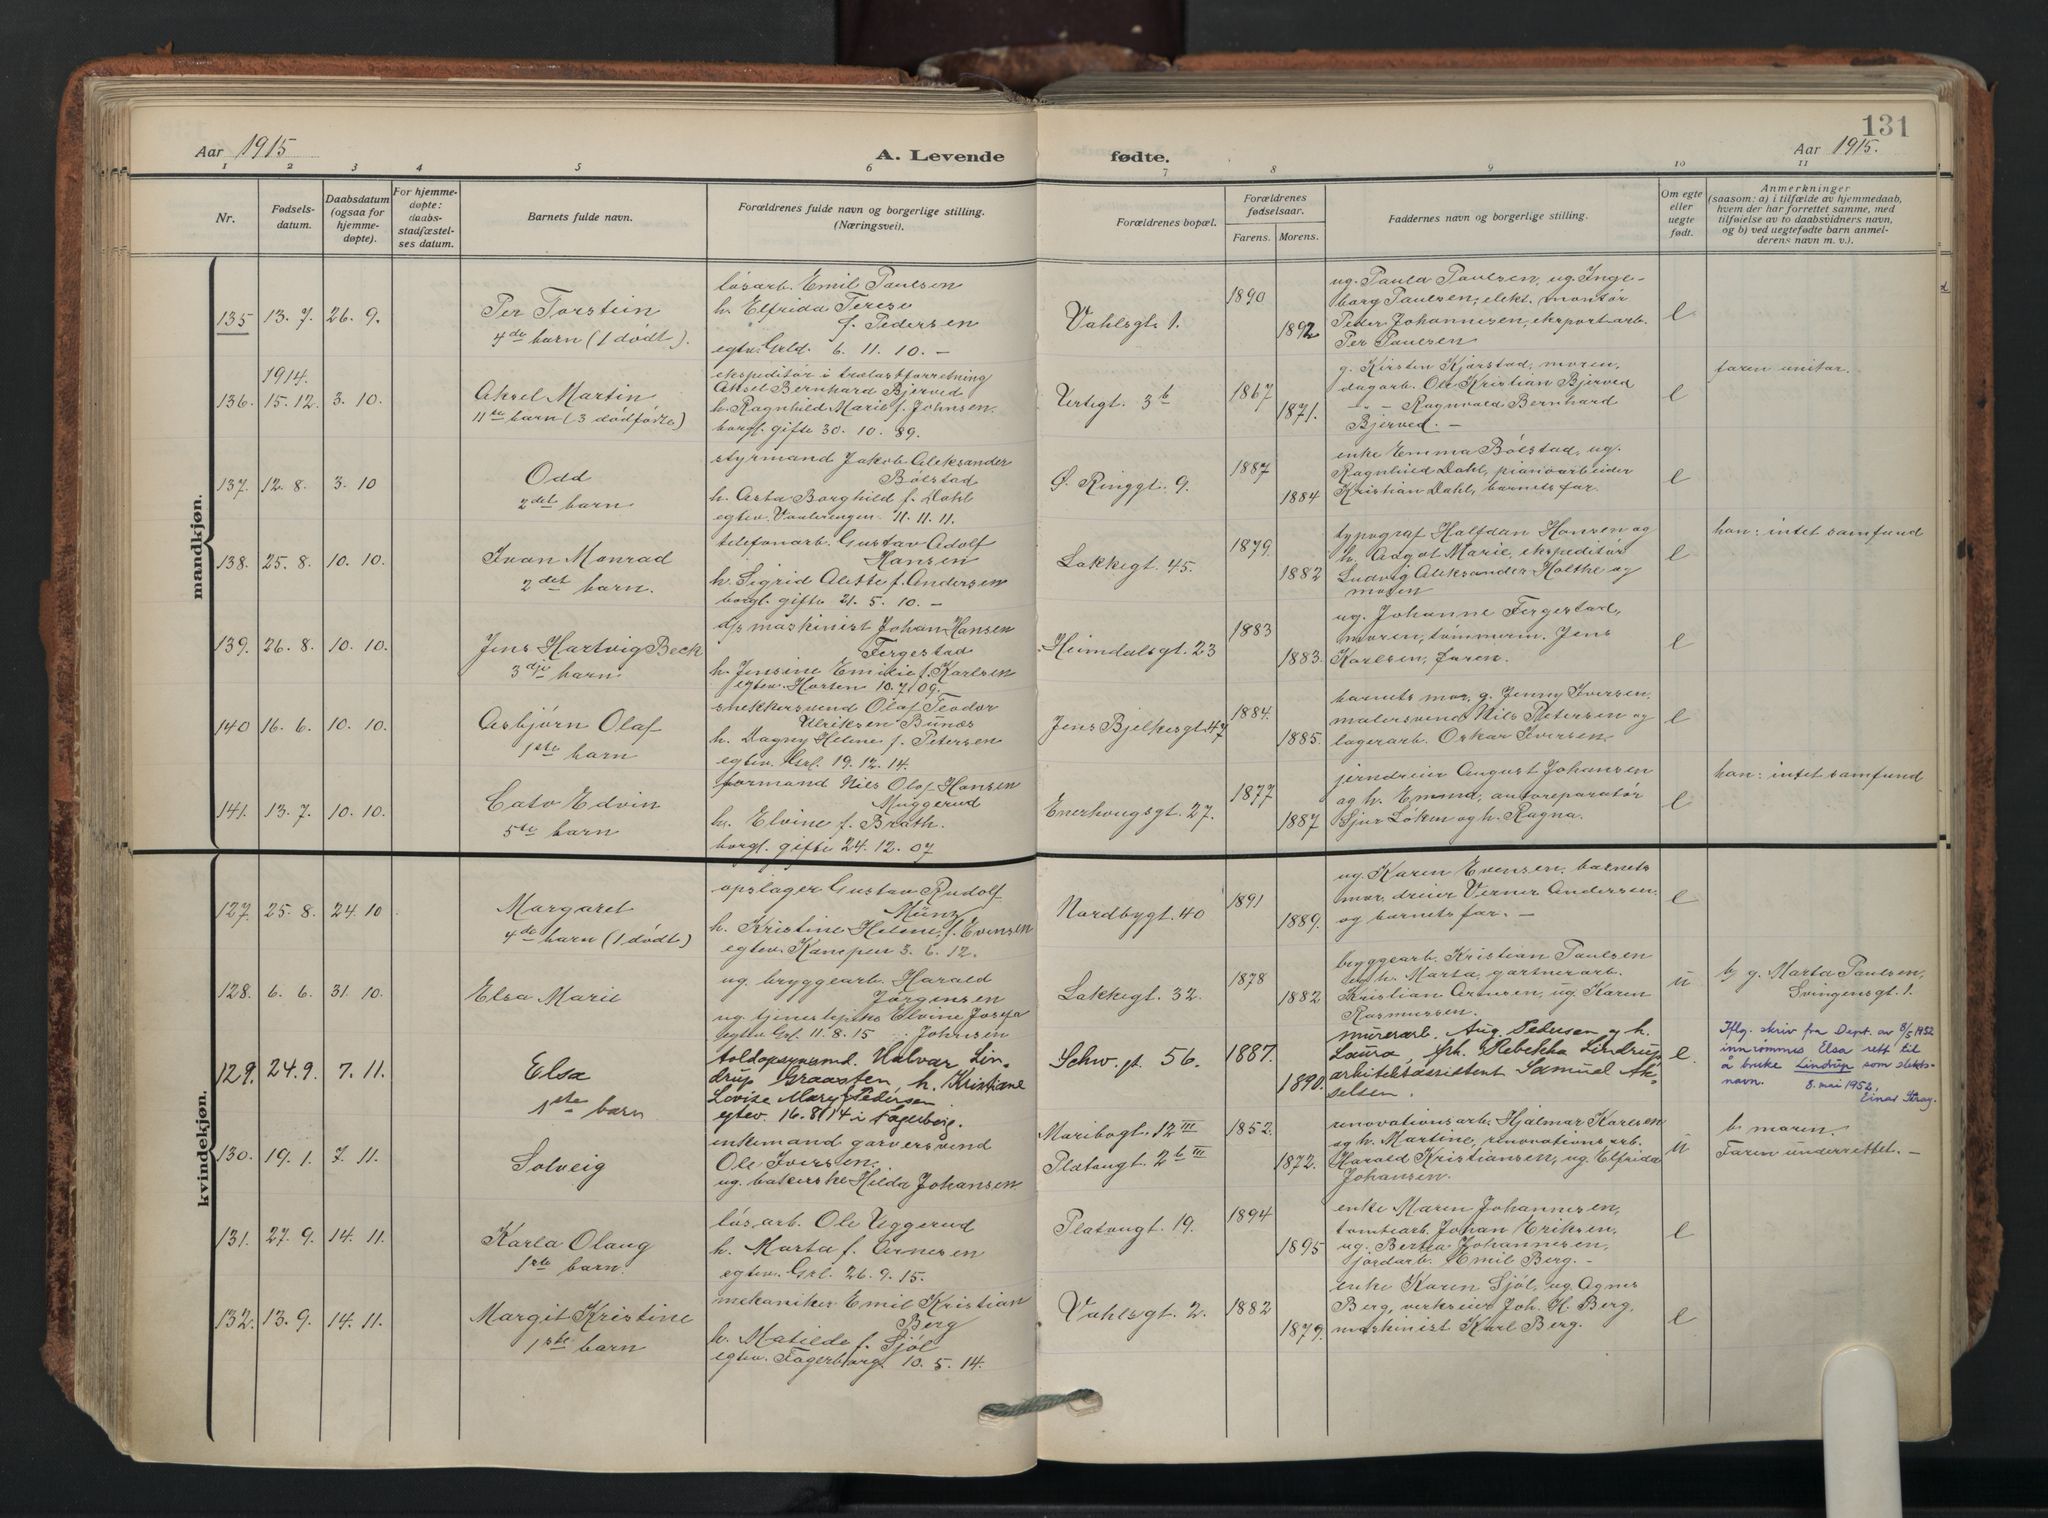 131
Aar 1915
A. Levende
fødte.
Aar 1915.
1 2 3 4 5 6 7 8 9 10 11
Nr.
Fødsels-
datum.
Daabsdatum
(ogsaa for
hjemme-
døpte).
For hjemme-
døpte:
daabs-
stadfæstel-
ses datum.
Barnets fulde navn.
Forældrenes fulde navn og borgerlige stilling.
(Næringsvei).
Forældrenes bopæl.
Forældrenes
fødselsaar.
Farens. Morens.
Faddernes navn og borgerlige stilling.
Om egte
eller
uegte
født.
Anmerkninger
(saasom: a) i tilfælde av hjemmedaab,
hvem der har forrettet samme, med
tilføielse av to daabsvidners navn,
og b) ved uegtefødte barn anmel-
derens navn m. v.).
mandkjøn.
135 13. 7. 26. 9.
Per Torstein
4de barn (1 dødt).
løsarb. Emil Paulsen
h. Elfrida Terese
f. Pedersen
egtev. Grld. 6. 11. 10. –
Vahlsgt. 1.
1890
1892
ug. Paula Paulsen, ug. Inge-
borg Paulsen, elekt. montør
Peder Johannesen, eksportarb.
Per Paulsen
e
1914.
136. 15. 12. 3. 10.
Aksel Martin
11te barn (3 dødfødte)
ekspeditør i trælastforretning
Aksel Bernhard Bjerved
h. Ragnhild Marie f. Johnsen.
borgl. gifte 30. 10. 89.
Urtegt. 3b
1867
1871.
g. Kirsten Kjørstad, moren,
dagarb. Ole Kristian Bjerved
– " – Ragnvald Bernhard
Bjerved. –
e
faren unitar.
137. 12. 8. 3. 10
Odd
2det barn
styrmand Jakob Aleksander
Bølstad
h. Asta Borghild f. Dahl
egtev. Vaalerengen 11. 11. 11.
Ø. Ringgt. 9.
1887
1884
enke Emma Bølstad, ug.
Ragnhild Dahl, pianoarbeider
Kristian Dahl, barnets far.
e
138. 25. 8. 10. 10.
Ivan Monrad
2det barn.
telefonarb. Gustav Adolf
Hansen
h. Sigrid Aleste f. Andersen
borgl. gifte 21. 5. 10. –
Lakkegt. 45.
1879.
1882
typograf Halfdan Hansen og
h. Aagot Marie, ekspeditør
Ludvig Aleksander Holthe og
moren
e
han: intet samfund
139. 26. 8. 10. 10.
Jens Hartvig Beck
3dje barn.
d/s maskinist Johan Hansen
Fergestad
h. Jensine Emilie f. Karlsen
egtev. Horten 10. 7. 09.
Heimdalsgt. 23
1883
1883.
ug. Johanne Fergestad,
moren, tømmerm. Jens
Karlsen, faren.
e
140 16. 6. 10. 10.
Asbjørn Olaf
1ste barn
snekkersvend Olaf Teodor
Ulriksen Bunæs
h. Dagny Helene f. Petersen
egtev. Grl. 19. 12. 14.
Jens Bjelkesgt. 47
1884.
1885.
barnets mor, g. Jenny Iversen,
malersvend Nils Petersen og
lagerarb. Oskar Iversen.
e
141. 13. 7. 10. 10.
Cato Edvin
5te barn
formand Nils Olaf Hansen
Muggerud
h. Elvine f. Bråth.
borgl. gifte 24. 12. 07
Enerhougsgt. 27.
1877
1887
jerndreier August Johansen
og h. Emma, autoreparatør
Sjur Løken og h. Ragna.
e
han: intet samfund
kvindekjøn.
127. 25. 8. 24. 10
Margaret
4de barn (1 dødt)
opslager Gustav Rudolf
Münz
h. Kristine Helene, f. Evensen
egtev. Kampen 3. 6. 12.
Nordbygt. 40
1891
1889.
ug. Karen Evensen, barnets
mor, dreier Verner Andersen
og barnets far. –
e
128. 6. 6. 31. 10.
Elsa Marie
ug. bryggearb. Harald
Jørgensen
ug. tjenestepike Elvine Josefa
Johnsen
egtev. Grl. 11. 8. 15
Lakkegt. 32.
1878
1882
bryggearb. Kristian Paulsen
og h. Marta, gartnerarb.
Kristian Arnesen, ug. Karen
Rasmussen.
u
b. g. Marta Paulsen,
Svingensgt. 1.
129. 24. 9. 7. 11.
Elsa
1ste barn
toldopsynsmd. Halvar Lin-
drup Graasten, h. Kristiane
Lovise Mary Pedersen
egtev. 16. 8. 14 i Fagerborg.
Schw. gt. 56.
1887.
1890.
murerarb. Aug. Pedersen og h.
Laura, frk. Rebekka Lindrup,
arkitektassistent Samuel Ak-
selsen.
e.
Iflg. skriv fra Dept. av 8/5 1952
innrømmes Elsa rett til
å bruke Lindrup som slekts-
navn. 8. mai 1952,
Einar Skrag.
130. 19. 1. 7. 11.
Solveig
enkemand garversvend
Ole Iversen
ug. bakerske Hilda Johansen
Maribogt. 12 III
Platougt. 2b III
1852.
1872.
renovationsarb. Hjalmar Karlsen
og h. Martine, renovationsarb.
Harald Kristiansen, ug. Elfrida
Johansen.
u
b. moren.
Faren underrettet. –
131. 27. 9. 14. 11.
Karla Olaug
1ste barn.
løsarb. Ole Uggerud
h. Marta f. Arnesen
egtev. Grl. 26. 9. 15.
Platougt. 19.
1894
1895
enke Maren Johannesen,
tomtearb. Johan Eriksen,
ug. Berta Johannesen,
jordarb. Emil Berg. –
e
132. 13. 9. 14. 11.
Margit Kristine
1ste barn
mekaniker Emil Kristian
Berg
h. Matilde f. Sjøl
egtev. Fagerborg. 10. 5. 14.
Vahlsgt. 2.
1882
1879.
enke Karen Sjøl, ug. Agnes
Berg, verkseier Joh. H. Berg,
maskinist Karl Berg.
e